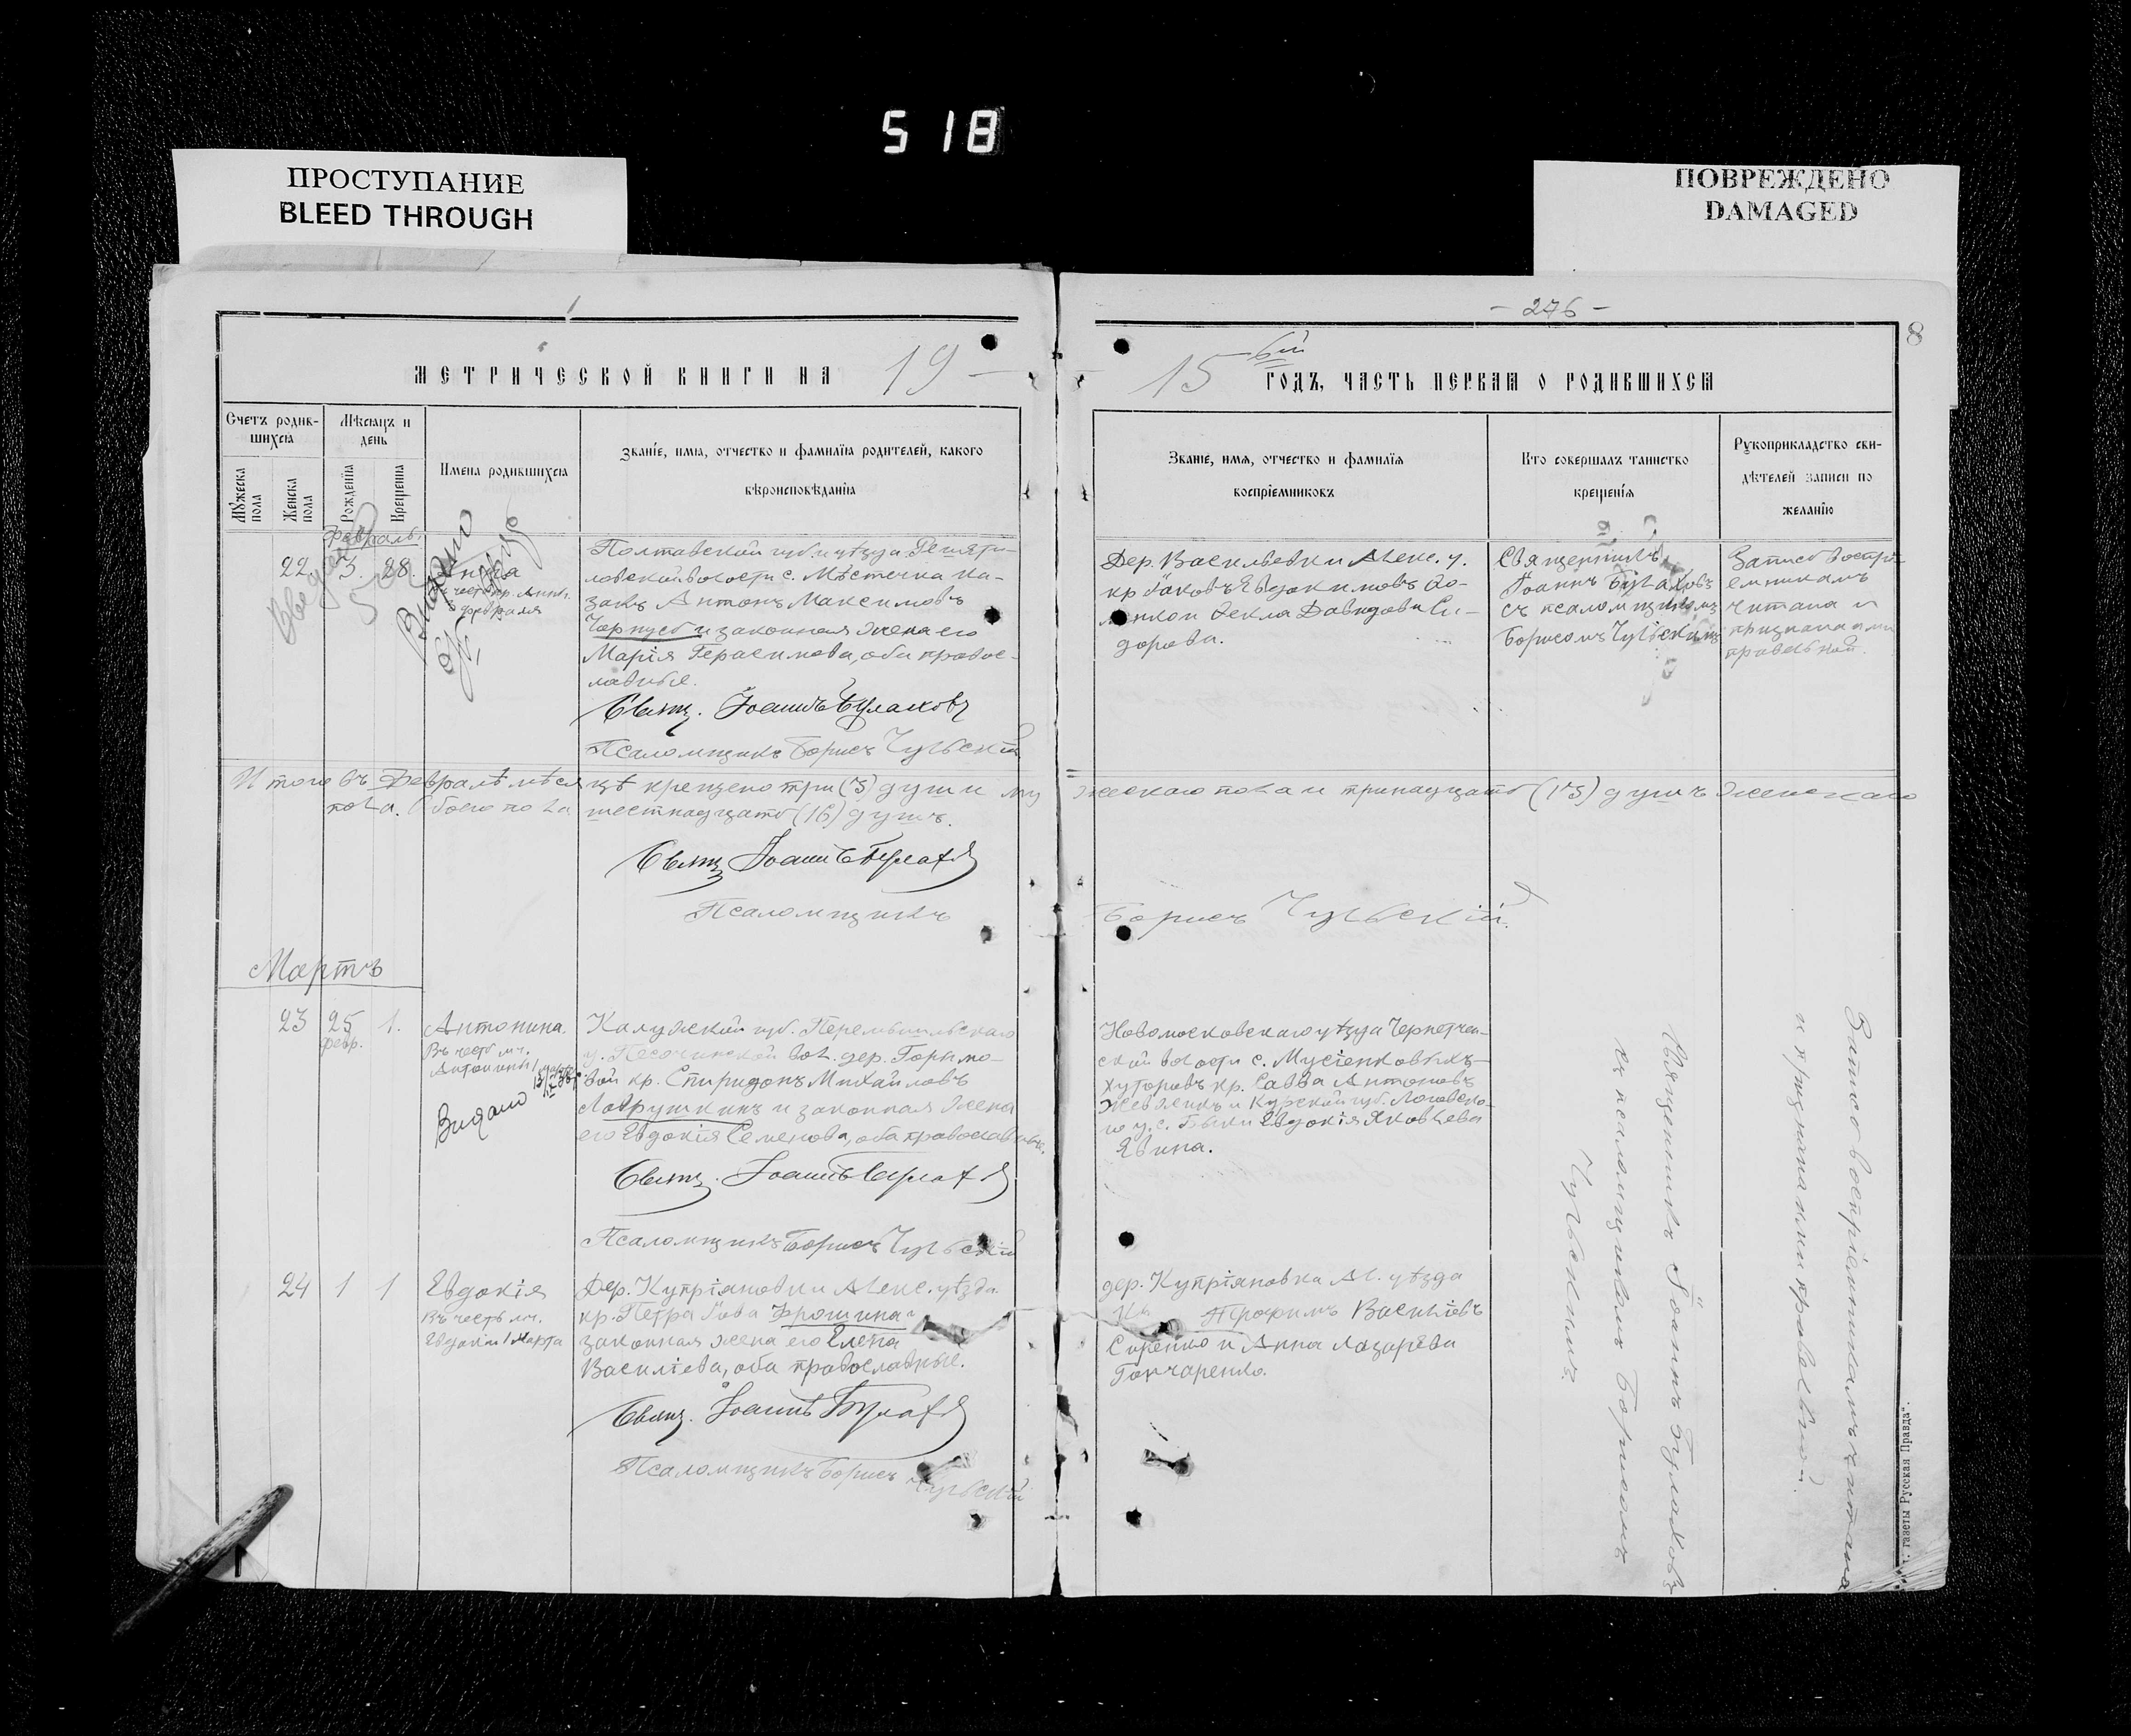 518
ПРОСТУПАНИЕ
BLEED THROUGH
ПОВРЕЖДЕНО
DAMAGED
- 276 -
8
МЕТРИЧЕСКОЙ КНИГИ НА 19
15 ый ГОДЪ, ЧАСТЬ ПЕРВАЯ О РОДИВШИХСЯ
Счетъ родив-
шихся
Мѣсяцъ и
день
Мужеска
пола
Женска
пола
Рожденія
Крещенія
Имена родившихся
Званіе, имя, отчество и фамилія родителей, какого
вѣроисповѣданія
Званіе, имя, отчество и фамилія
воспріемниковъ
Кто совершалъ таинство
крещенія
Рукоприкладство сви-
дѣтелей записи по
желанію
Февраль.
22 3. 28. Анна
въ честь пр. Анны
февраля
Выдано
Полтавской губ. и уѣзда Решети-
ловской волости с. Мѣстечка ка-
закъ Антонъ Максимовъ
Чорнусъ и законная жена его
Марія Герасимова, оба правос-
лавные.
Свящ. Іоаннъ Булаховъ
Псаломщикъ Борисъ Чульскій
Дер. Васильевки Алекс. у.
кр Іаковъ Евдокимовъ
и Фекла Давидова Си-
дорова.
Священникъ
Іоаннъ Булаховъ
съ псаломщикомъ
Борисомъ Чульскимъ
Запись воспрі-
емникамъ
читана и
признана ими
правельной.
Итого въ Февралѣ мѣсяцѣ крещено три (3) души мужескаго пола и тринадцать (13) душъ женскаго
пола. Обоего пола шестнадцать (16) душъ.
Свящ Іоаннъ Булаховъ
Псаломщикъ Борисъ Чульскій.
Мартъ
23 25 1. Антонина.
февр.
Въ честь мч.
Антонины 1 марта
Выдано
Калужской губ. Перемышльскаго
у. Песоченской вол. дер. Горы мо-
вой кр. Спиридонъ Михайловъ
Лаврушкинъ и законная жена
его Евдокія Семенова, оба православные.
Свящ. Іоаннъ Булаховъ
Псаломщикъ Борисъ Чульскій
Новомосковскаго уѣзда Чернетчен-
ской волости с. Мусіенковыхъ
хуторовъ кр. Савва Антоновъ
и Курской губ. Льговска-
го у. с. Быки Евдокія Яковлева
Явина.
24 1 1 Евдокія
Въ честь мч.
Евдокіи 1 Марта
Дер. Купріяновки Алекс. уѣзда
кр. Петра Фрошина и
законная жена его Елена
Василіева, оба православные.
Свящ. Іоаннъ Булаховъ
Псаломщикъ Борисъ Чульскій
дер. Купріяновка Ал. уѣзда
Трофимъ Василіевъ
Сиренко и Анна Лазарева
Гончаренко.
Священникъ Іоаннъ Булаховъ
съ псаломщикомъ Борисомъ
Чульскимъ
Запись воспріемникамъ читана
и признана ими правельной.
газеты Русская Правда".